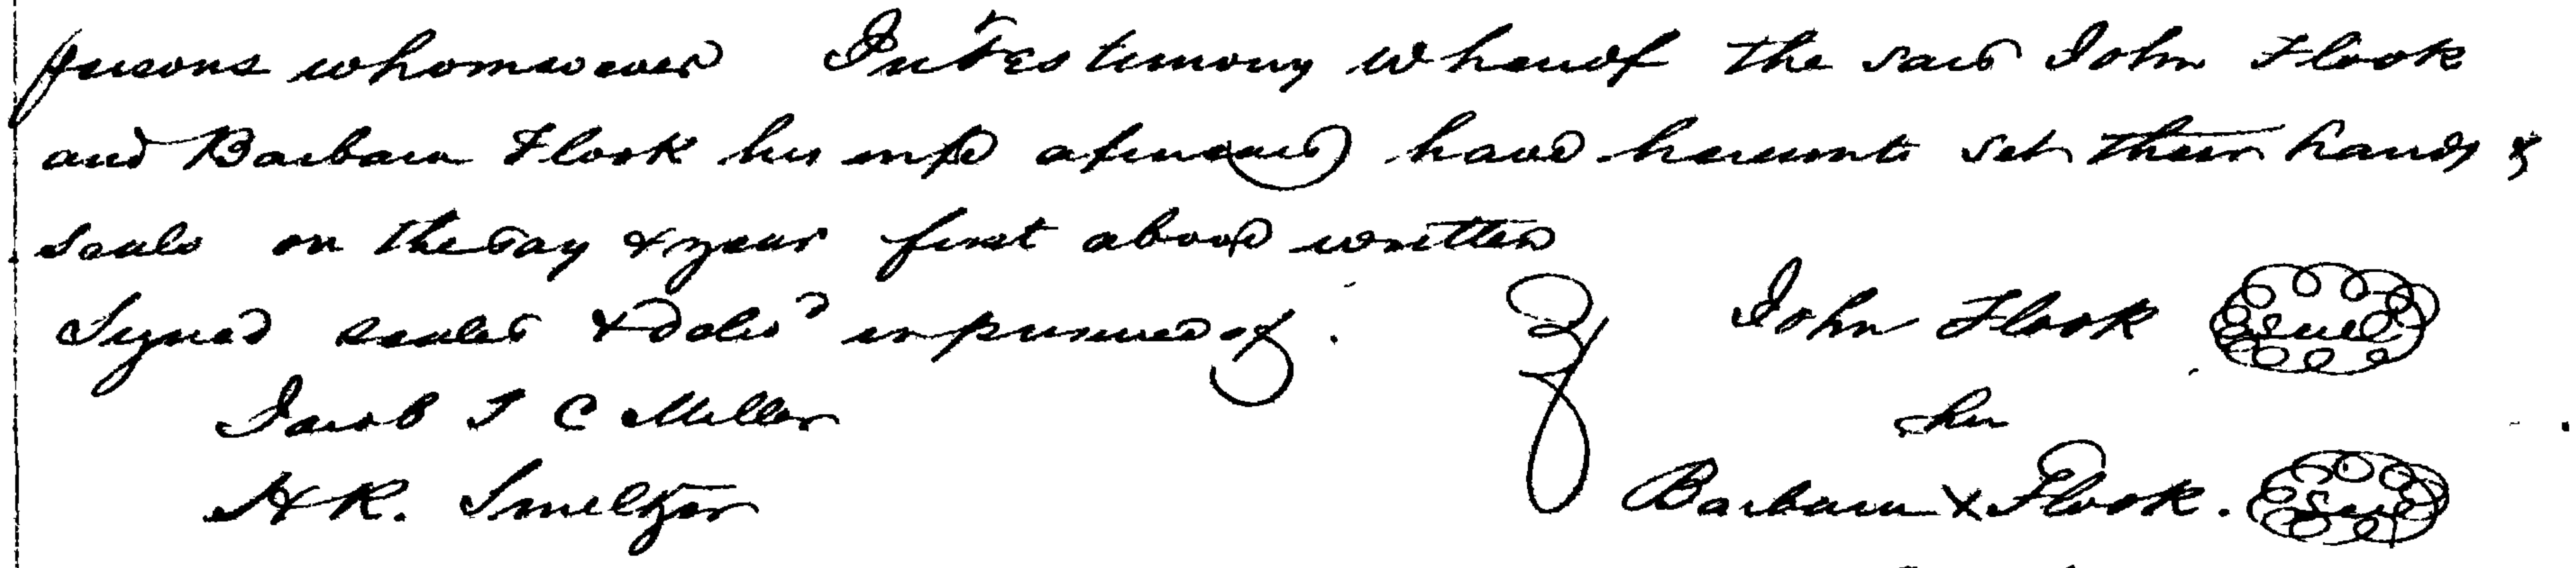 persons whomsoever In Testimony whereof the said John Flook
and Barbara Flook his wife aforesaid have hereunto set their hands &
seals on the day & year first above written
Signed sealed & deliv'd in presence of . John Flook Seal
Jacob T C Miller her
H K. Smeltzer Barbara X Flook. Seal